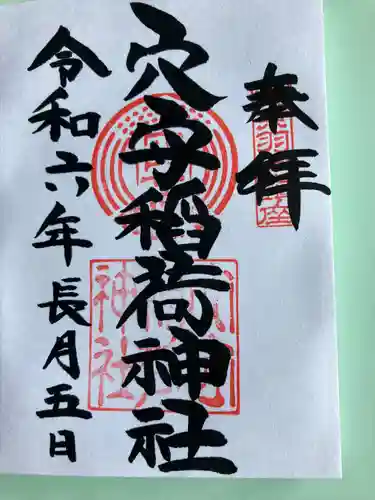 奉拝
穴守稲荷神社
令和六年長月五日